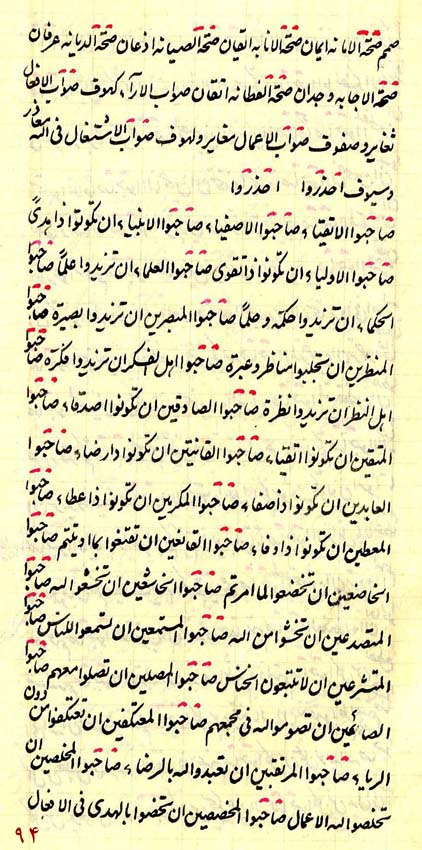 صمم صفحة الامانه ايمان صفحة الانابه ايقان صفحة الصيانه اذعان صفحة الديانه عرفان
صفحة الاجابه وجدان صفحة الفطانه اتقان صواب الآراء كهوف صواب الافعال
ثغاير وصفوف صواب الاعمال مغاير ولهوف صواب الاشتغال فى الله معاذر
وسيوف احذروا احذروا
صاحبوا الاتقياء صاحبوا الاصفياء صاحبوا الانبياء ان تكونوا ذا هدىً
صاحبوا الاولياء ان تكونوا ذا تقوى صاحبوا العلماء ان تزيدوا علماً صاحبوا
الحكماء ان تزيدوا حكمة وحلماً صاحبوا المتبصرين ان تزيدوا بصيرة صاحبوا
المنظرين ان تستجلبوا مناظر وعبرة صاحبوا اهل الفكر ان تزيدوا فكرة صاحبوا
اهل النظر ان تزيدوا نظرة صاحبوا الصادقين ان تكونوا اصدقاء صاحبوا
المتقين ان تكونوا اتقياء صاحبوا القانتين ان تكونوا ذا رضاء صاحبوا
العابدين ان تكونوا ذا صفاء صاحبوا المكرمين ان تكونوا ذا عطاء صاحبوا
المعطين ان تكونوا ذا وفاء صاحبوا القانعين ان تقنعوا بما اوتيتم صاحبوا
الخاضعين ان تخضعوا لما امرتم صاحبوا الخاشعين ان تخشعوا لله صاحبوا
المتصدعين ان تخشوا من الله صاحبوا المستمعين ان تسمعوا للناس صاحبوا
المتشرعين ان لا تتبعون الخناس صاحبوا المصلين ان تصلوا معهم صاحبوا
الصائمين ان تصوموا لله فى مجمعهم صاحبوا المعتكفين ان تعتكفوا من دون
الرياء صاحبوا المرتقبين ان تعبدوا لله بالرضاء صاحبوا المخلصين ان
تخلصوا لله الاعمال صاحبوا المخصصين ان تخصوا بالهدى فى الافعال
٩٤